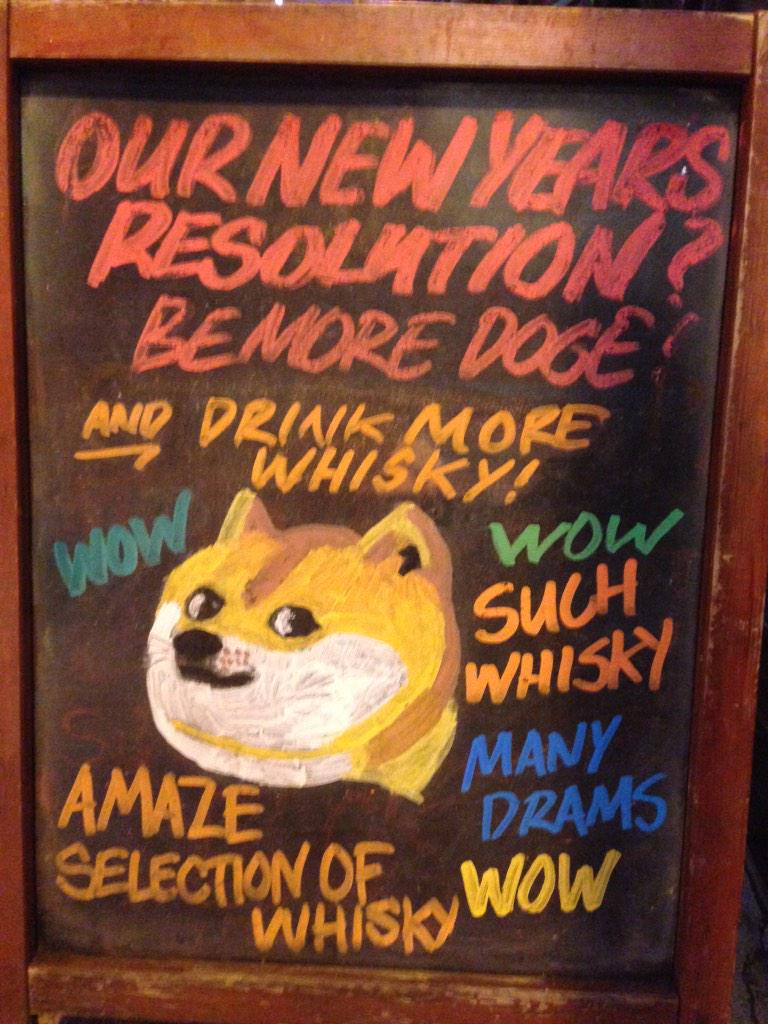 OUR NEW YEARS
RESOLUTION?
BE MORE DOGE!
AND DRINK MORE
WHISKY!
WOW
WOW
SUCH
WHISKY
MANY
DRAMS
AMAZE
SELECTION OF
WHISKY
WOW